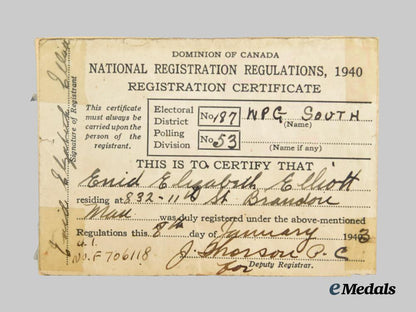 DOMINION OF CANADA
NATIONAL REGISTRATION REGULATIONS, 1940
REGISTRATION CERTIFICATE
This certificate
must always be
carried upon the
person of the
registrant.
Electoral
District
No 187 WPG SOUTH
(Name)
Polling
Division
No 53
(Name if any)
THIS IS TO CERTIFY THAT
Enid Elizabeth Elliott
residing at 832-11th St. Brandon
Man was duly registered under the above-mentioned
Regulations this 8th day of January 1943
No. F 706118
J. Thorson P.C
for Deputy Registrar.
Enid Elizabeth Elliott
Signature of Registrant
eMedals